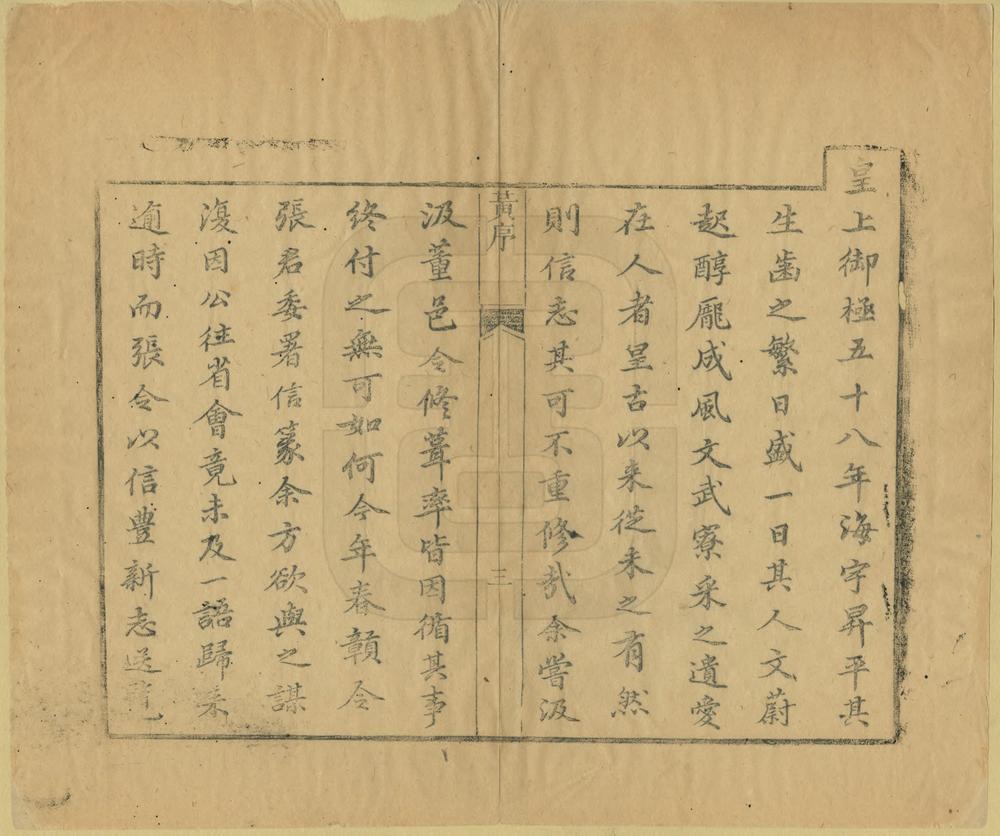 皇上御極五十八年海宇昇平其
生齒之繁日盛一日其人文蔚
起醇龐成風文武寮采之遺愛
在人者皇古以来從未之有然
則信志其可不重修哉余嘗汲
黃序
三
汲董邑令修葺率皆因循其事
終付之無可如何今年春贛令
張君委署信篆余方欲與之謀
復因公往省會竟未及一語歸来
逾時而張令以信豐新志送